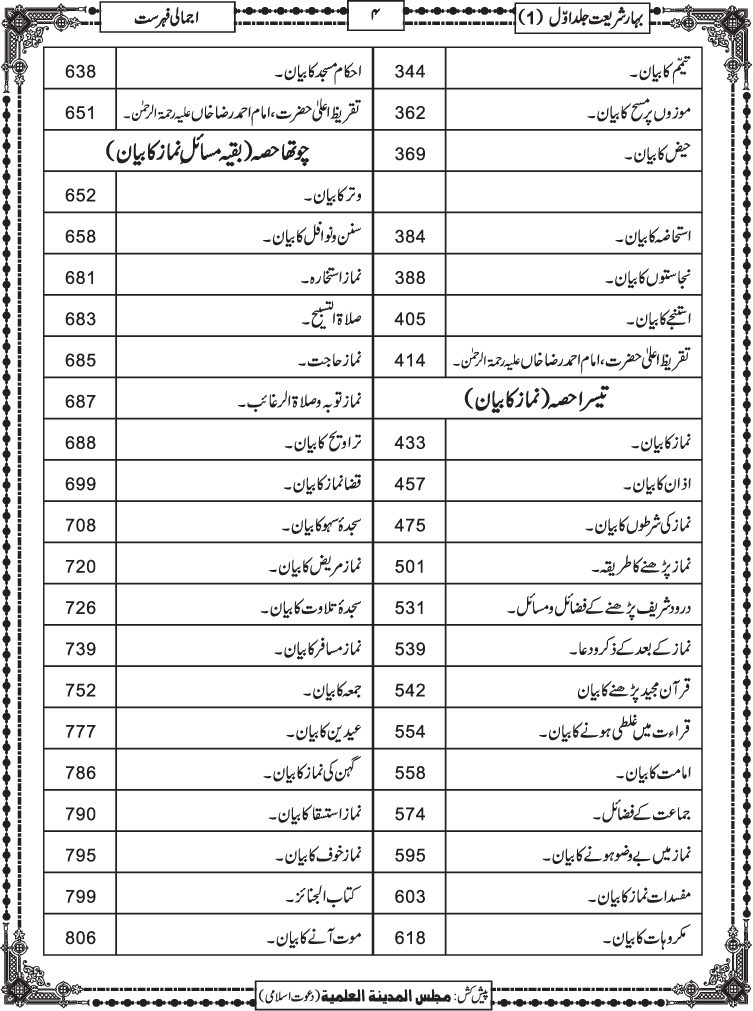 بہار شریعت جلد اوّل (1)
۴
اجمالی فہرست
تیمّم کا بیان۔ 344
موزوں پر مسح کا بیان۔ 362
حیض کا بیان۔ 369
استحاضہ کا بیان۔ 384
نجاستوں کا بیان۔ 388
استنجے کا بیان۔ 405
تقریظ اعلیٰ حضرت، امام احمد رضا خاں علیہ رحمۃ الرحمٰن۔ 414
تیسرا حصہ (نماز کا بیان)
نماز کا بیان۔ 433
اذان کا بیان۔ 457
نماز کی شرطوں کا بیان۔ 475
نماز پڑھنے کا طریقہ۔ 501
درود شریف پڑھنے کے فضائل و مسائل۔ 531
نماز کے بعد کے ذکر و دعا۔ 539
قرآن مجید پڑھنے کا بیان 542
قراءت میں غلطی ہونے کا بیان۔ 554
امامت کا بیان۔ 558
جماعت کے فضائل۔ 574
نماز میں بے وضو ہونے کا بیان۔ 595
مفسدات نماز کا بیان۔ 603
مکروہات کا بیان۔ 618
احکام مسجد کا بیان۔ 638
تقریظ اعلیٰ حضرت، امام احمد رضا خاں علیہ رحمۃ الرحمٰن۔ 651
چوتھا حصہ (بقیہ مسائلِ نماز کا بیان)
وتر کا بیان۔ 652
سنن و نوافل کا بیان۔ 658
نماز استخارہ۔ 681
صلاۃ التسبیح۔ 683
نماز حاجت۔ 685
نماز توبہ و صلاۃ الرغائب۔ 687
تراویح کا بیان۔ 688
قضا نماز کا بیان۔ 699
سجدۂ سہو کا بیان۔ 708
نماز مریض کا بیان۔ 720
سجدۂ تلاوت کا بیان۔ 726
نماز مسافر کا بیان۔ 739
جمعہ کا بیان۔ 752
عیدین کا بیان۔ 777
گہن کی نماز کا بیان۔ 786
نماز استسقا کا بیان۔ 790
نماز خوف کا بیان۔ 795
کتاب الجنائز۔ 799
موت آنے کا بیان۔ 806
پیش کش: مجلس المدینة العلمیة (دعوت اسلامی)